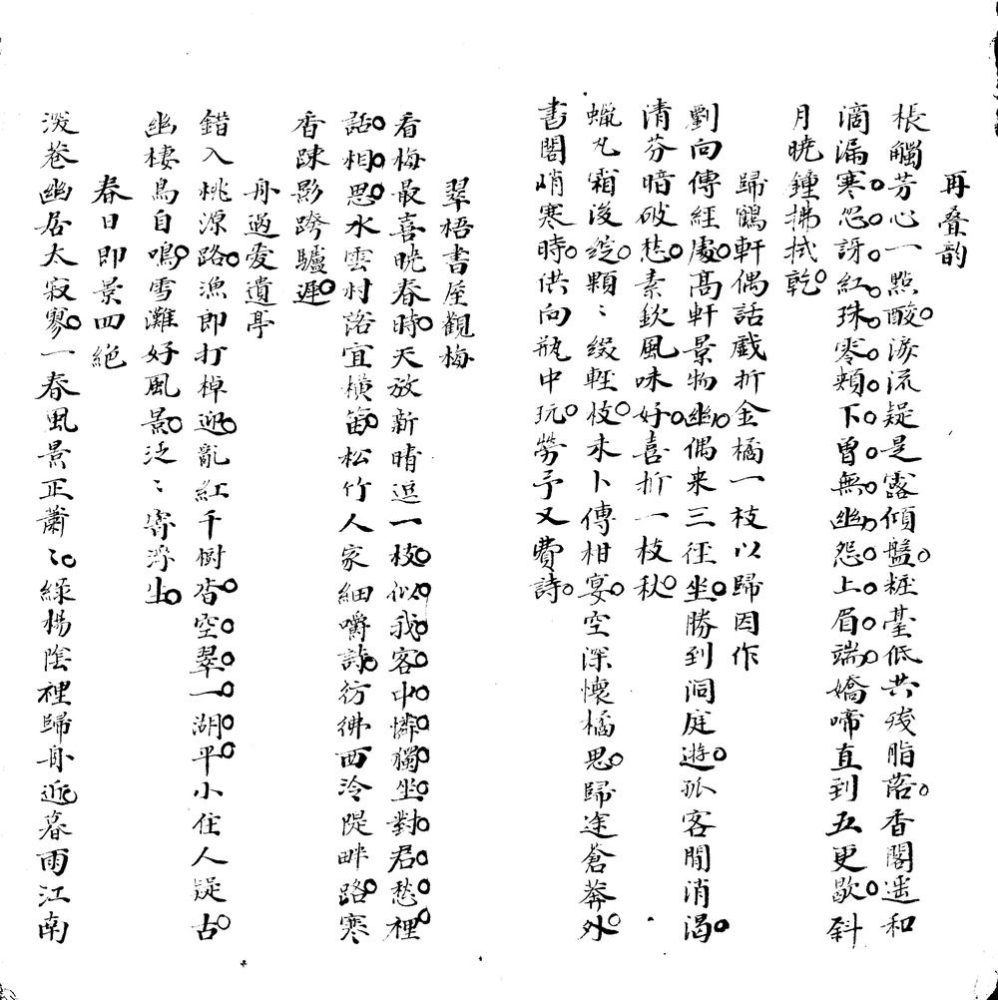 再叠韵
棖觸芳心一點酸渗流疑是露傾盤粧臺低共殘脂落香閣遥和
滴漏寒忽訝紅珠零頰下曽無幽怨上眉端嬌啼直到五更歇斜
月曉鍾拂拭乾
歸鶴軒偶話戲折金橘一枝以歸因作
劉向傳經處髙軒景物幽偶来三徑坐勝到洞庭遊孤客閒消渴
清芬暗破愁素欽風味好喜折一枝秋
蠟丸霜後綻顆〻綴輕枝未卜傳柑宴空深懷橘思歸途蒼莽外
書閣峭寒時供向瓶中玩勞予又費詩
翠梧書屋觀梅
看梅最喜曉春時天放新晴逗一枝似我客中憐獨坐對君愁裡
話相思水雲村落宜横笛松竹人家細嚼詩彷彿西泠隄畔路寒
香踈影跨驢遲
舟過愛遺亭
錯入桃源路漁郎打棹迎亂紅千樹杳空翠一湖平小住人疑古
幽棲鳥自鳴雪灘好風景泛〻寄浮生
春日即景四絶
深巷幽居太寂寥一春風景正蕭〻緑楊陰裡歸舟近暮雨江南